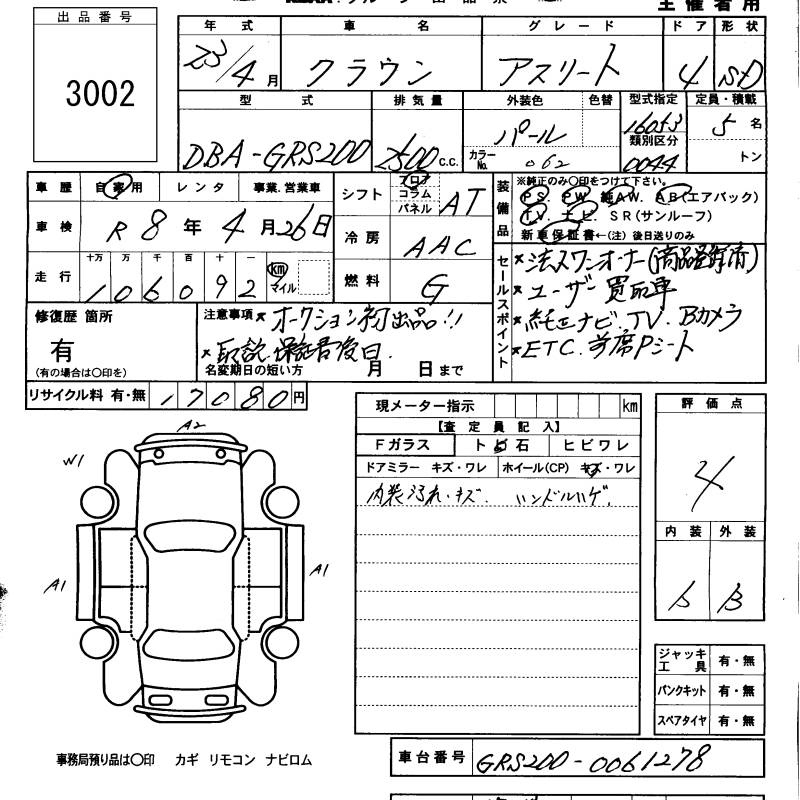 主催者用
出品番号
3002
年式 車名 グレード ドア 形状
23/4月 クラウン アスリート 4 SD
型式 排気量 外装色 色替 型式指定 定員・積載
DBA-GRS200 2500c.c. パール 16053 5名
カラーNo. 062 類別区分 0044 トン
車歴 自家用 レンタ 事業,営業車
シフト フロア コラム パネル AT
装備品 ※純正のみ○印をつけて下さい。
PS. PW. 純AW. AB(エアバック)
TV. ナビ. SR(サンルーフ)
新車保証書←(注)後日送りのみ
車検 R8年4月26日
冷房 AAC
走行 十万 万 千 百 十 一
106092 km マイル
燃料 G
セールスポイント
*法人ワンオーナー
*ユーザー買取車
*純正ナビ.TV.Bカメラ
*ETC. Pシート
修復歴 箇所
有
(有の場合は○印を)
注意事項 *オークション初出品!!
*取説.保証書後日.
名変期日の短い方 月 日まで
リサイクル料 有・無 17080円
現メーター指示 km
【査定員記入】
Fガラス ト ビ 石 ヒビワレ
ドアミラー キズ・ワレ ホイール(CP) キズ・ワレ
内装汚れ・キズ. ハンドルハゲ.
評価点
4
内装 外装
B
A2
W1
A1
A1
ジャッキ工具 有・無
パンクキット 有・無
スペアタイヤ 有・無
事務局預り品は○印 カギ リモコン ナビロム
車台番号 GRS200-0061278